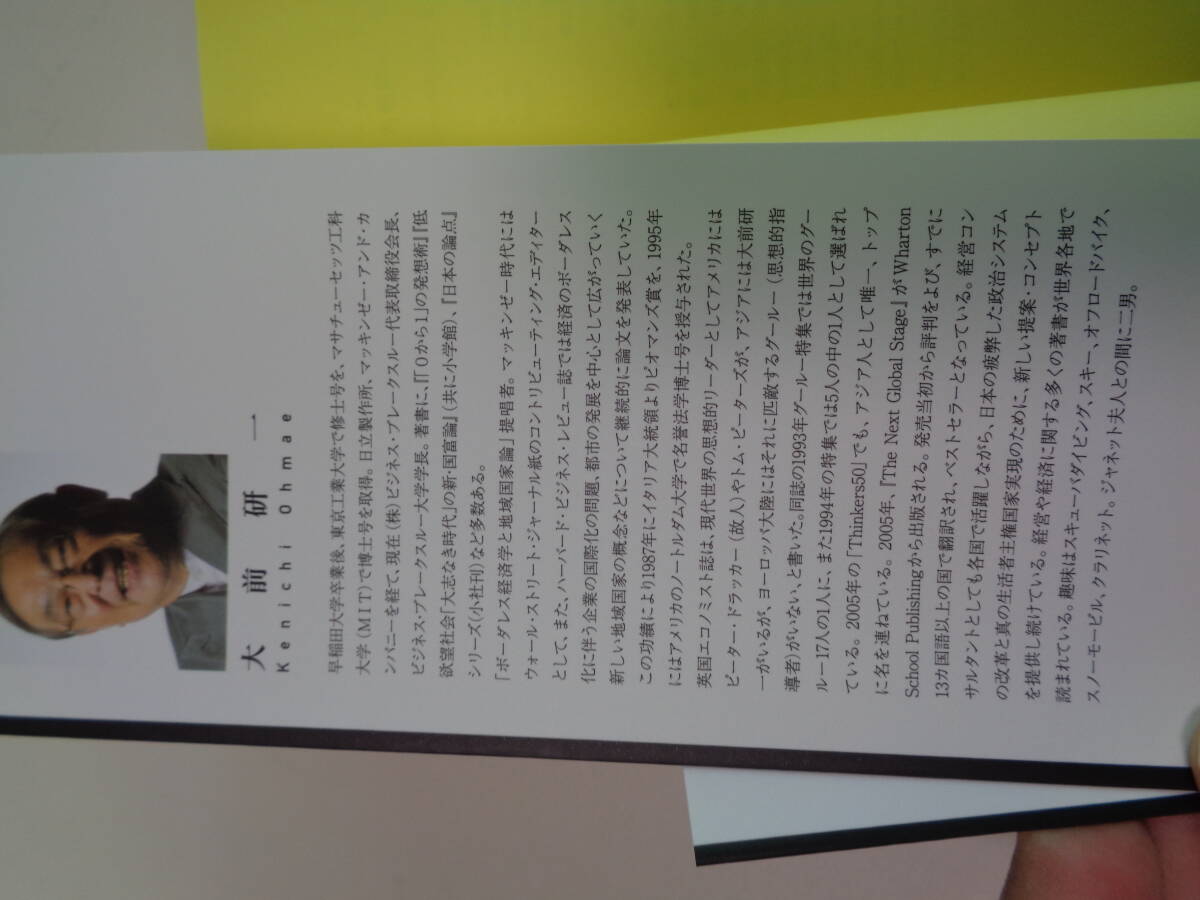 大前研一
Kenichi Ohmae
早稲田大学卒業後、東京工業大学で修士号を、マサチューセッツ工科
大学（MIT）で博士号を取得。日立製作所、マッキンゼー・アンド・カ
ンパニーを経て、現在（株）ビジネス・ブレークスルー代表取締役会長、
ビジネス・ブレークスルー大学学長。著書に、『「0から1」の発想術』『低
欲望社会「大志なき時代」の新・国富論』（共に小学館）、『日本の論点』
シリーズ（小社刊）など多数ある。
「ボーダレス経済学と地域国家論」提唱者。マッキンゼー時代には
ウォール・ストリート・ジャーナル紙のコントリビューティング・エディター
として、また、ハーバード・ビジネス・レビュー誌では経済のボーダレス
化に伴う企業の国際化の問題、都市の発展を中心として広がっていく
新しい地域国家の概念などについて継続的に論文を発表していた。
この功績により1987年にイタリア大統領よりピオマンズ賞を、1995年
にはアメリカのノートルダム大学で名誉法学博士号を授与された。
英国エコノミスト誌は、現代世界の思想的リーダーとしてアメリカには
ピーター・ドラッカー（故人）やトム・ピーターズが、アジアには大前研
一がいるが、ヨーロッパ大陸にはそれに匹敵するグールー（思想的指
導者）がいない、と書いた。同誌の1993年グールー特集では世界のグー
ルー17人の1人に、また1994年の特集では5人の中の1人として選ばれ
ている。2005年の「Thinkers50」でも、アジア人として唯一、トップ
に名を連ねている。2005年、『The Next Global Stage』がWharton
School Publishingから出版される。発売当初から評判をよび、すでに
13カ国語以上の国で翻訳され、ベストセラーとなっている。経営コン
サルタントとしても各国で活躍しながら、日本の疲弊した政治システム
の改革と真の生活者主権国家実現のために、新しい提案・コンセプト
を提供し続けている。経営や経済に関する多くの著書が世界各地で
読まれている。趣味はスキューバダイビング、スキー、オフロードバイク、
スノーモービル、クラリネット。ジャネット夫人との間に二男。